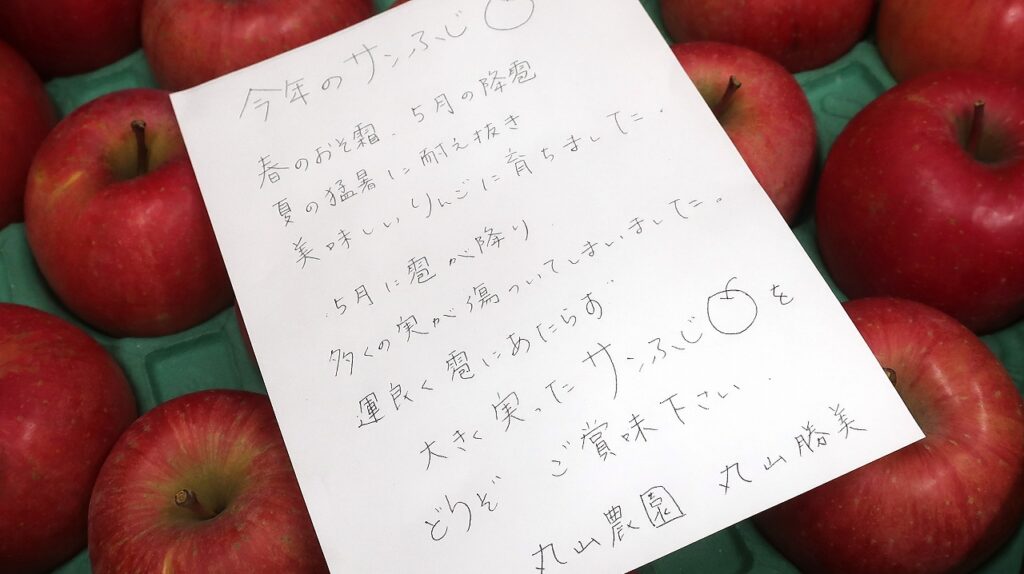 今年のサンふじ
春のおそ霜、5月の降雹
夏の猛暑に耐え抜き
美味しいりんごに育ちました。
5月に雹が降り
多くの実が傷ついてしまいました。
運良く雹にあたらず
大きく実ったサンふじを
どうぞ ご賞味下さい。
丸山農園 丸山勝美